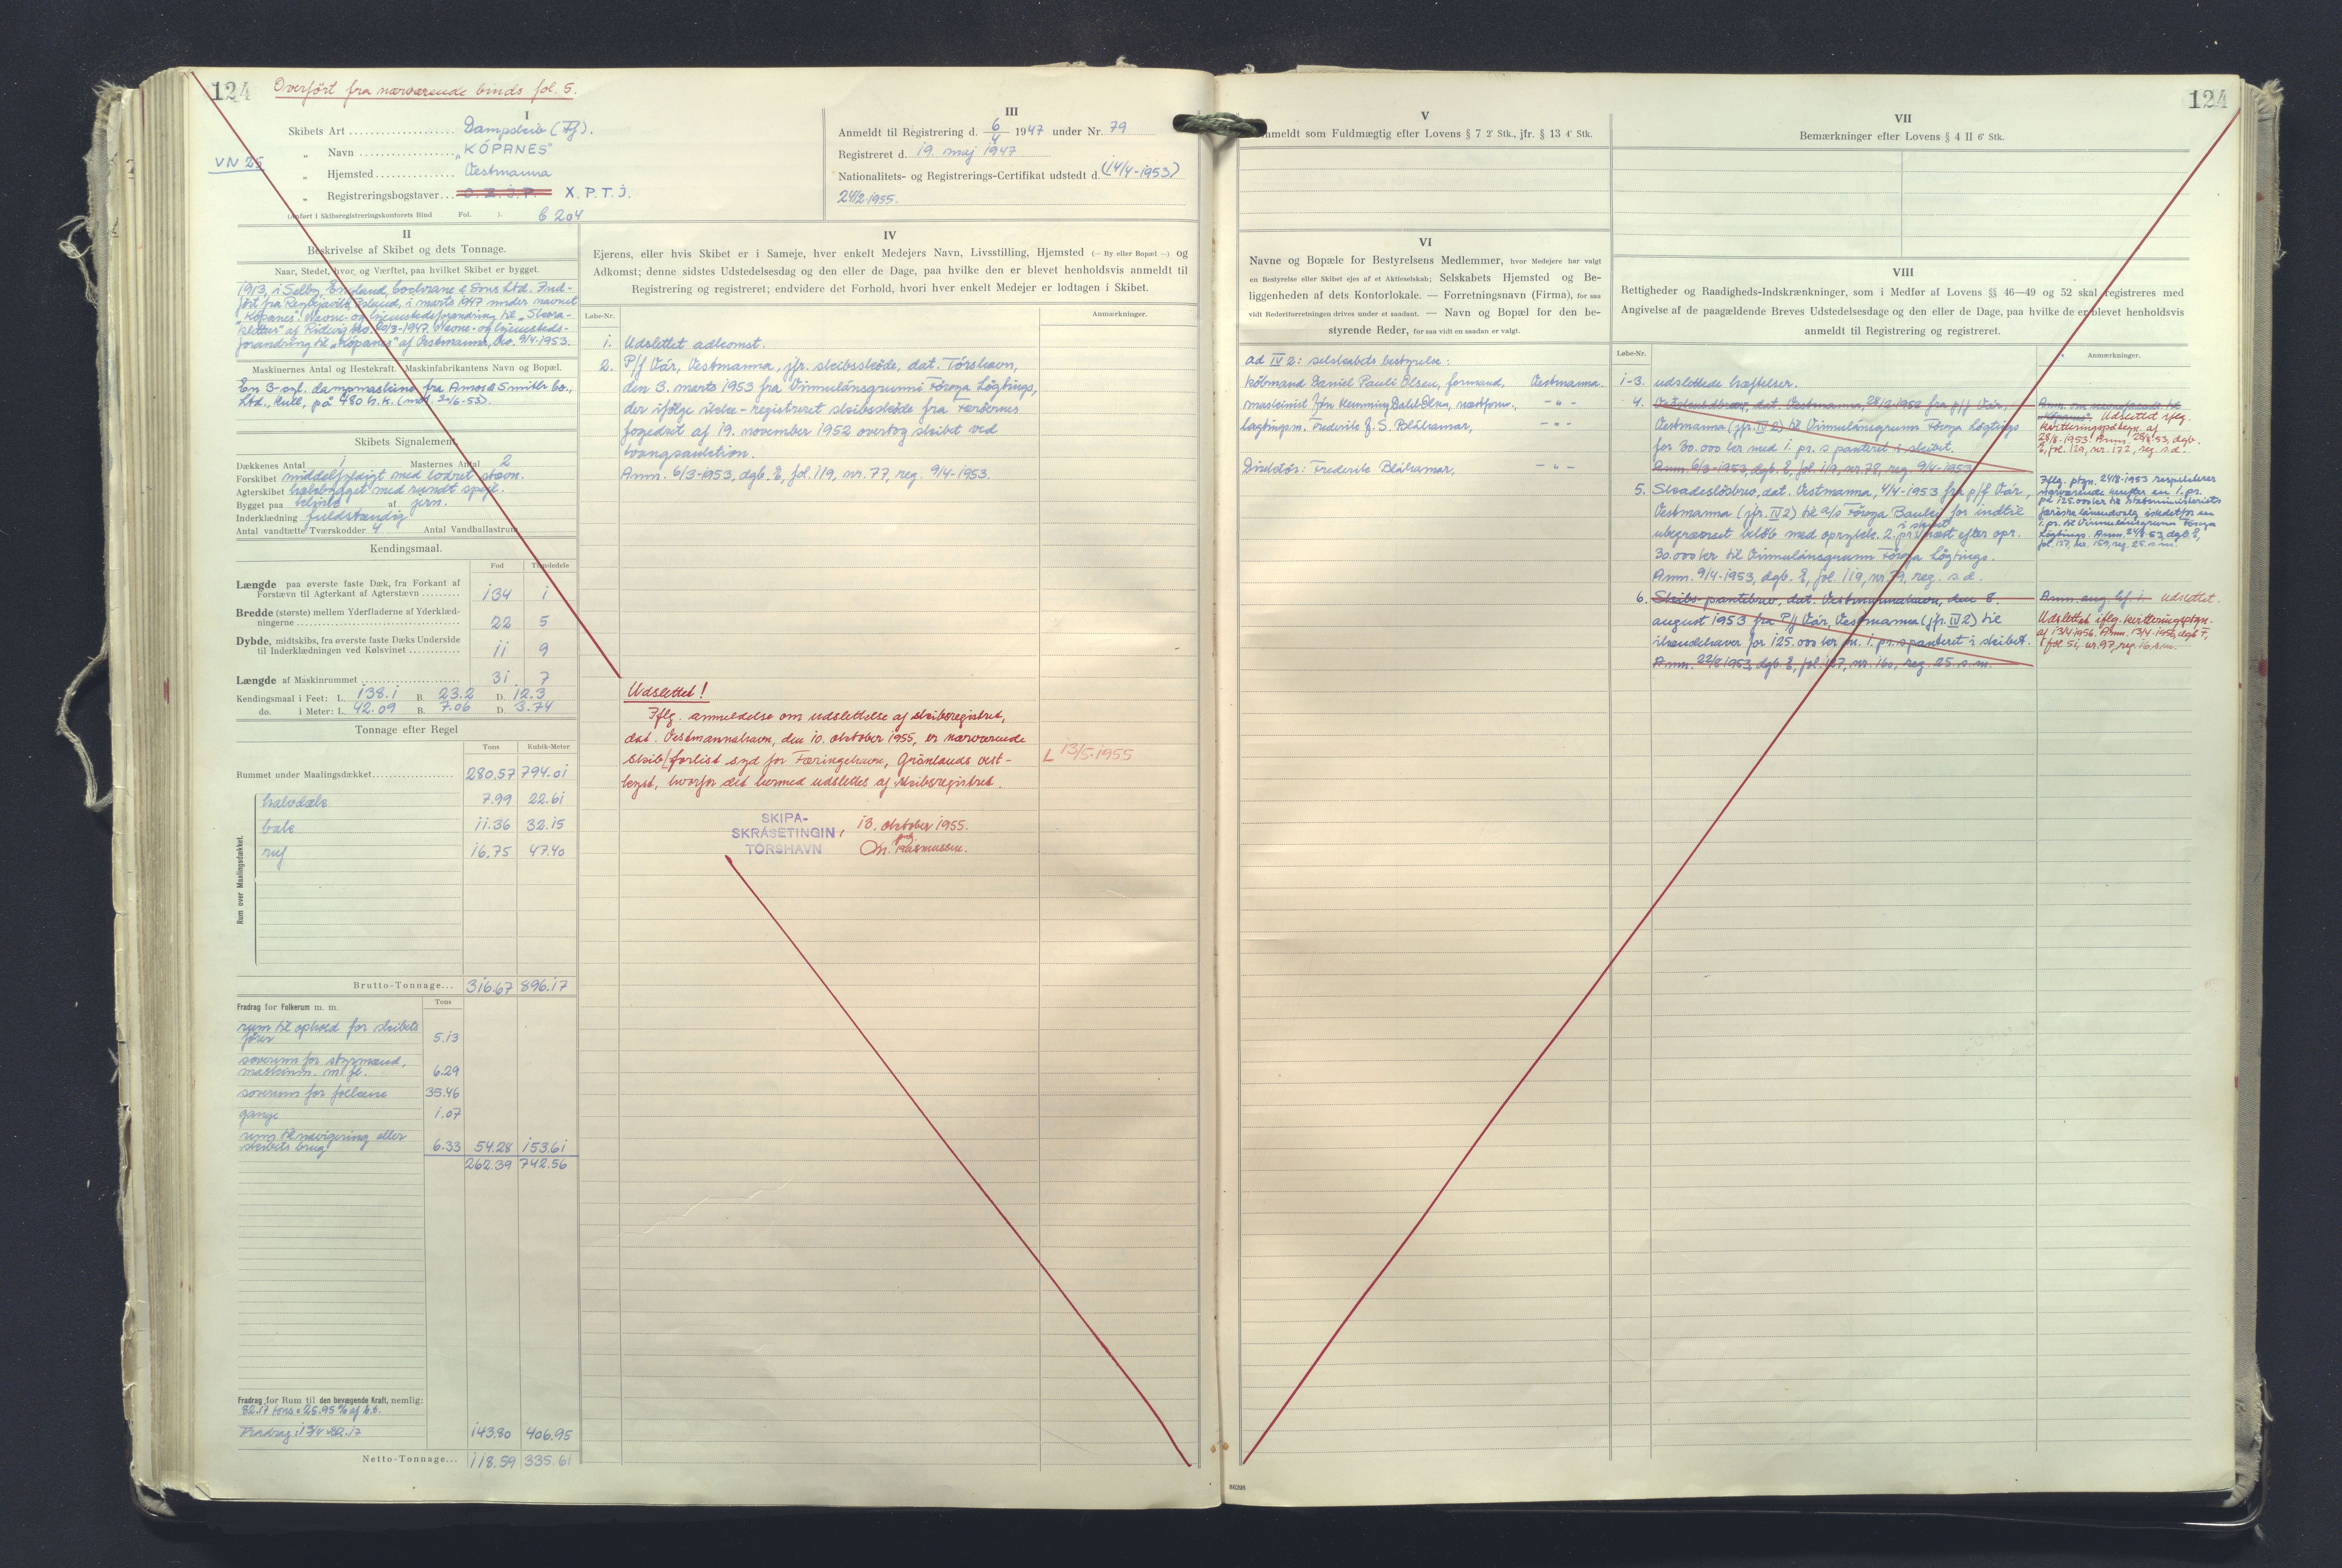 124
Overført fra nærværende binds fol. 5.
I
Skibets Art Dampskib (Fj).
VN 25
„ Navn „KÓPANES"
„ Hjemsted Vestmanna
„ Registreringsbogstaver X.P.T.J.
(Anført i Skibsregistreringskontorets Bind Fol. ). 6 204
III
Anmeldt til Registrering d. 6/4 1947 under Nr. 79
Registreret d. 19. maj 1947
Nationalitets- og Registrerings-Certifikat udstedt d. (14/4-1953)
24/2-1955.
II
Beskrivelse af Skibet og dets Tonnage.
Naar, Stedet, hvor og Værftet, paa hvilket Skibet er bygget.
1913, i Selby, England, Cochrane & Sons Ltd. Ind-
ført fra Reykjavik, Island, i marts 1947 under navnet
„Kópanes". Navne- og hjemstedsforandring til „Skora-
klettur" af Ridevig 20/3-1947. Navne- og hjemsteds-
forandring til „Kópanes" af Vestmanna, 9/4-1953.
Maskinernes Antal og Hestekraft. Maskinfabrikantens Navn og Bopæl.
En 3-cyl. dampmaskine fra Amos & Smith Co.,
Ltd., Hull, på 480 h.k. (30/6-53).
Skibets Signalement
Dækkenes Antal 1 Masternes Antal 2
Forskibet middelfyldigt med lodret stævn.
Agterskibet halvbygget med rundt spejl.
Bygget paa klink af jern.
Inderklædning fuldstændig
Antal vandtætte Tværskodder 4 Antal Vandballastrum
Kendingsmaal.
Fod Tiendedele
Længde paa øverste faste Dæk, fra Forkant af
Forstævn til Agterkant af Agterstævn 134 1
Bredde (største) mellem Yderfladerne af Yderklæd-
ningerne 22 5
Dybde, midtskibs, fra øverste faste Dæks Underside
til Inderklædningen ved Kølsvinet 11 9
Længde af Maskinrummet 31 7
Kendingsmaal i Feet: L. 138.1 B. 23.2 D. 12.3
do. i Meter: L. 42.09 B. 7.06 D. 3.74
Tonnage efter Regel
Tons Kubik-Meter
Rummet under Maalingsdækket 280.57 794.01
Rum over Maalingsdækket.
halvdæk 7.99 22.61
bak 11.36 32.15
ruf 16.75 47.40
Brutto-Tonnage... 316.67 896.17
Fradrag for Folkerum m. m. Tons
rum til ophold for skibets
fører 5.13
soverum for styrmænd,
maskinm. m. fl. 6.29
soverum for folkene 35.46
gange 1.07
rum til navigering eller
skibets brug 6.33 54.28 153.61
262.39 742.56
Fradrag for Rum til den bevægende Kraft, nemlig:
82.17 tons = 25.95 % af b.t.
Fradrag: 1 3/4 × 82.17 143.80 406.95
Netto-Tonnage... 118.59 335.61
IV
Ejerens, eller hvis Skibet er i Sameje, hver enkelt Medejers Navn, Livsstilling, Hjemsted (— By eller Bopæl —) og
Adkomst; denne sidstes Udstedelsesdag og den eller de Dage, paa hvilke den er blevet henholdsvis anmeldt til
Registrering og registreret; endvidere det Forhold, hvori hver enkelt Medejer er lodtagen i Skibet.
Løbe-Nr. Anmærkninger.
1. Udslettet adkomst.
2. P/f Vár, Vestmanna, jfr. skibsskøde, dat. Tórshavn,
den 3. marts 1953 fra Vinnulánsgrunni Føroya Løgtings,
der ifølge ikke-registreret skibsskøde fra Færøernes
fogedret af 19. november 1952 overtog skibet ved
tvangsauktion.
Anm. 6/3-1953, dgb. E, fol. 119, nr. 77, reg. 9/4-1953.
Udslettet!
Iflg. anmeldelse om udslettelse af skibsregistret,
dat. Vestmannahavn, den 10. oktober 1955, er nærværende
skib forlist syd for Færingehavn, Grønlands vest-
kyst, hvorfor det hermed udslettes af skibsregistret.
L 13/5-1955
SKIPA-
SKRÁSETINGIN, 13. oktober 1955.
TÓRSHAVN Rasmussen.
124
V
Anmeldt som Fuldmægtig efter Lovens § 7 2' Stk., jfr. § 13 4' Stk.
VI
Navne og Bopæle for Bestyrelsens Medlemmer, hvor Medejere har valgt
en Bestyrelse eller Skibet ejes af et Aktieselskab; Selskabets Hjemsted og Be-
liggenheden af dets Kontorlokale. — Forretningsnavn (Firma), for saa
vidt Rederiforretningen drives under et saadant. — Navn og Bopæl for den be-
styrende Reder, for saa vidt en saadan er valgt.
ad IV 2: selskabets bestyrelse:
købmand Daniel Pauli Olsen, formand, Vestmanna.
maskinist Jón Hemming Dahl Olsen, næstform., - " -
lagtingsm. Frederik J. S. Bláhamar, - " -
Direktør: Frederik Bláhamar, - " -
VII
Bemærkninger efter Lovens § 4 II 6' Stk.
VIII
Rettigheder og Raadigheds-Indskrænkninger, som i Medfør af Lovens §§ 46—49 og 52 skal registreres med
Angivelse af de paagældende Breves Udstedelsesdage og den eller de Dage, paa hvilke de er blevet henholdsvis
anmeldt til Registrering og registreret.
Løbe-Nr. Anmærkninger.
1-3. udslettede hæftelser.
4. dat. Vestmanna, 28/2-1953 fra p/f Vár,
Vestmanna (jfr. IV 2) til Vinnulánsgrunn Føroya Løgtings
for 30.000 kr med 1. pr. s panteret i skibet.
Anm. 6/3-1953, dgb. E, fol. 119, nr. 78, reg. 9/4-1953
Udslettet iflg.
kvitteringspåtegn. af
28/8-1953. Anm. 28/8-53, dgb.
E, fol. 129, nr. 172, reg. s.d.
5. Skadesløsbrev, dat. Vestmanna, 4/4-1953 fra p/f Vár,
Vestmanna (jfr. IV 2) til a/s Føroya Banki for indtil
ubegrænset beløb med oprykk. 2. pr. i skibet næst efter opr.
30.000 kr til Vinnulánsgrunn Føroya Løgtings.
Anm. 9/4-1953, dgb. E, fol. 119, nr. 79, reg. s.d.
Iflg. ptgn. 24/8-1953 respekterer
nærværende hæfter en 1. pr.
på 125.000 kr til Statsministeriets
færøske låneudvalg istedet for en
1. pr. til Vinnulánsgrunn Føroya
Løgtings. Anm. 24/8-53, dgb. E,
fol. 127, nr. 159, reg. 25. s.m.
6. Skibs-pantebrev, dat. Vestmannahavn, den 8.
august 1953 fra P/f Vár, Vestmanna (jfr. IV 2) til
ihændehaver for 125.000 kr m. 1. pr. s panteret i skibet.
Anm. 22/8 1953, dgb. E, fol. 127, nr. 160, reg. 25. s.m.
Anm. ang. hf. 1. udslettet.
Udslettet iflg. kvitteringsptgn.
af 13/4 1956. Anm. 13/4-1956, dgb F,
fol. 51, nr. 97, reg. 16. s.m.
86298